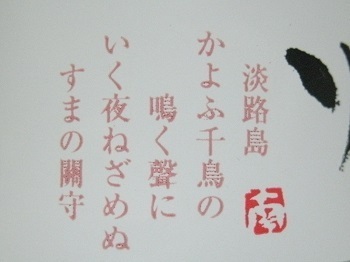 淡路島
かよふ千鳥の
鳴く聲に
いく夜ねざめぬ
すまの關守